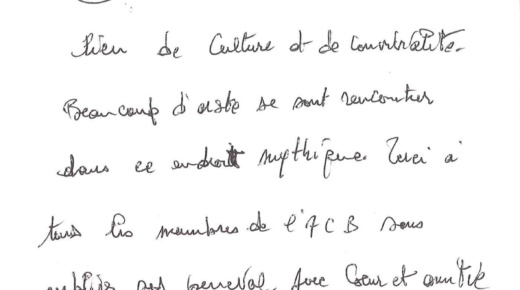 lieu de Culture et de convivialité.
Beaucoup d'artiste se sont rencontrer
dans ce endroit mythique. Merci à
tous les membres de l'ACB sans
oublier Avec Coeur et amitié